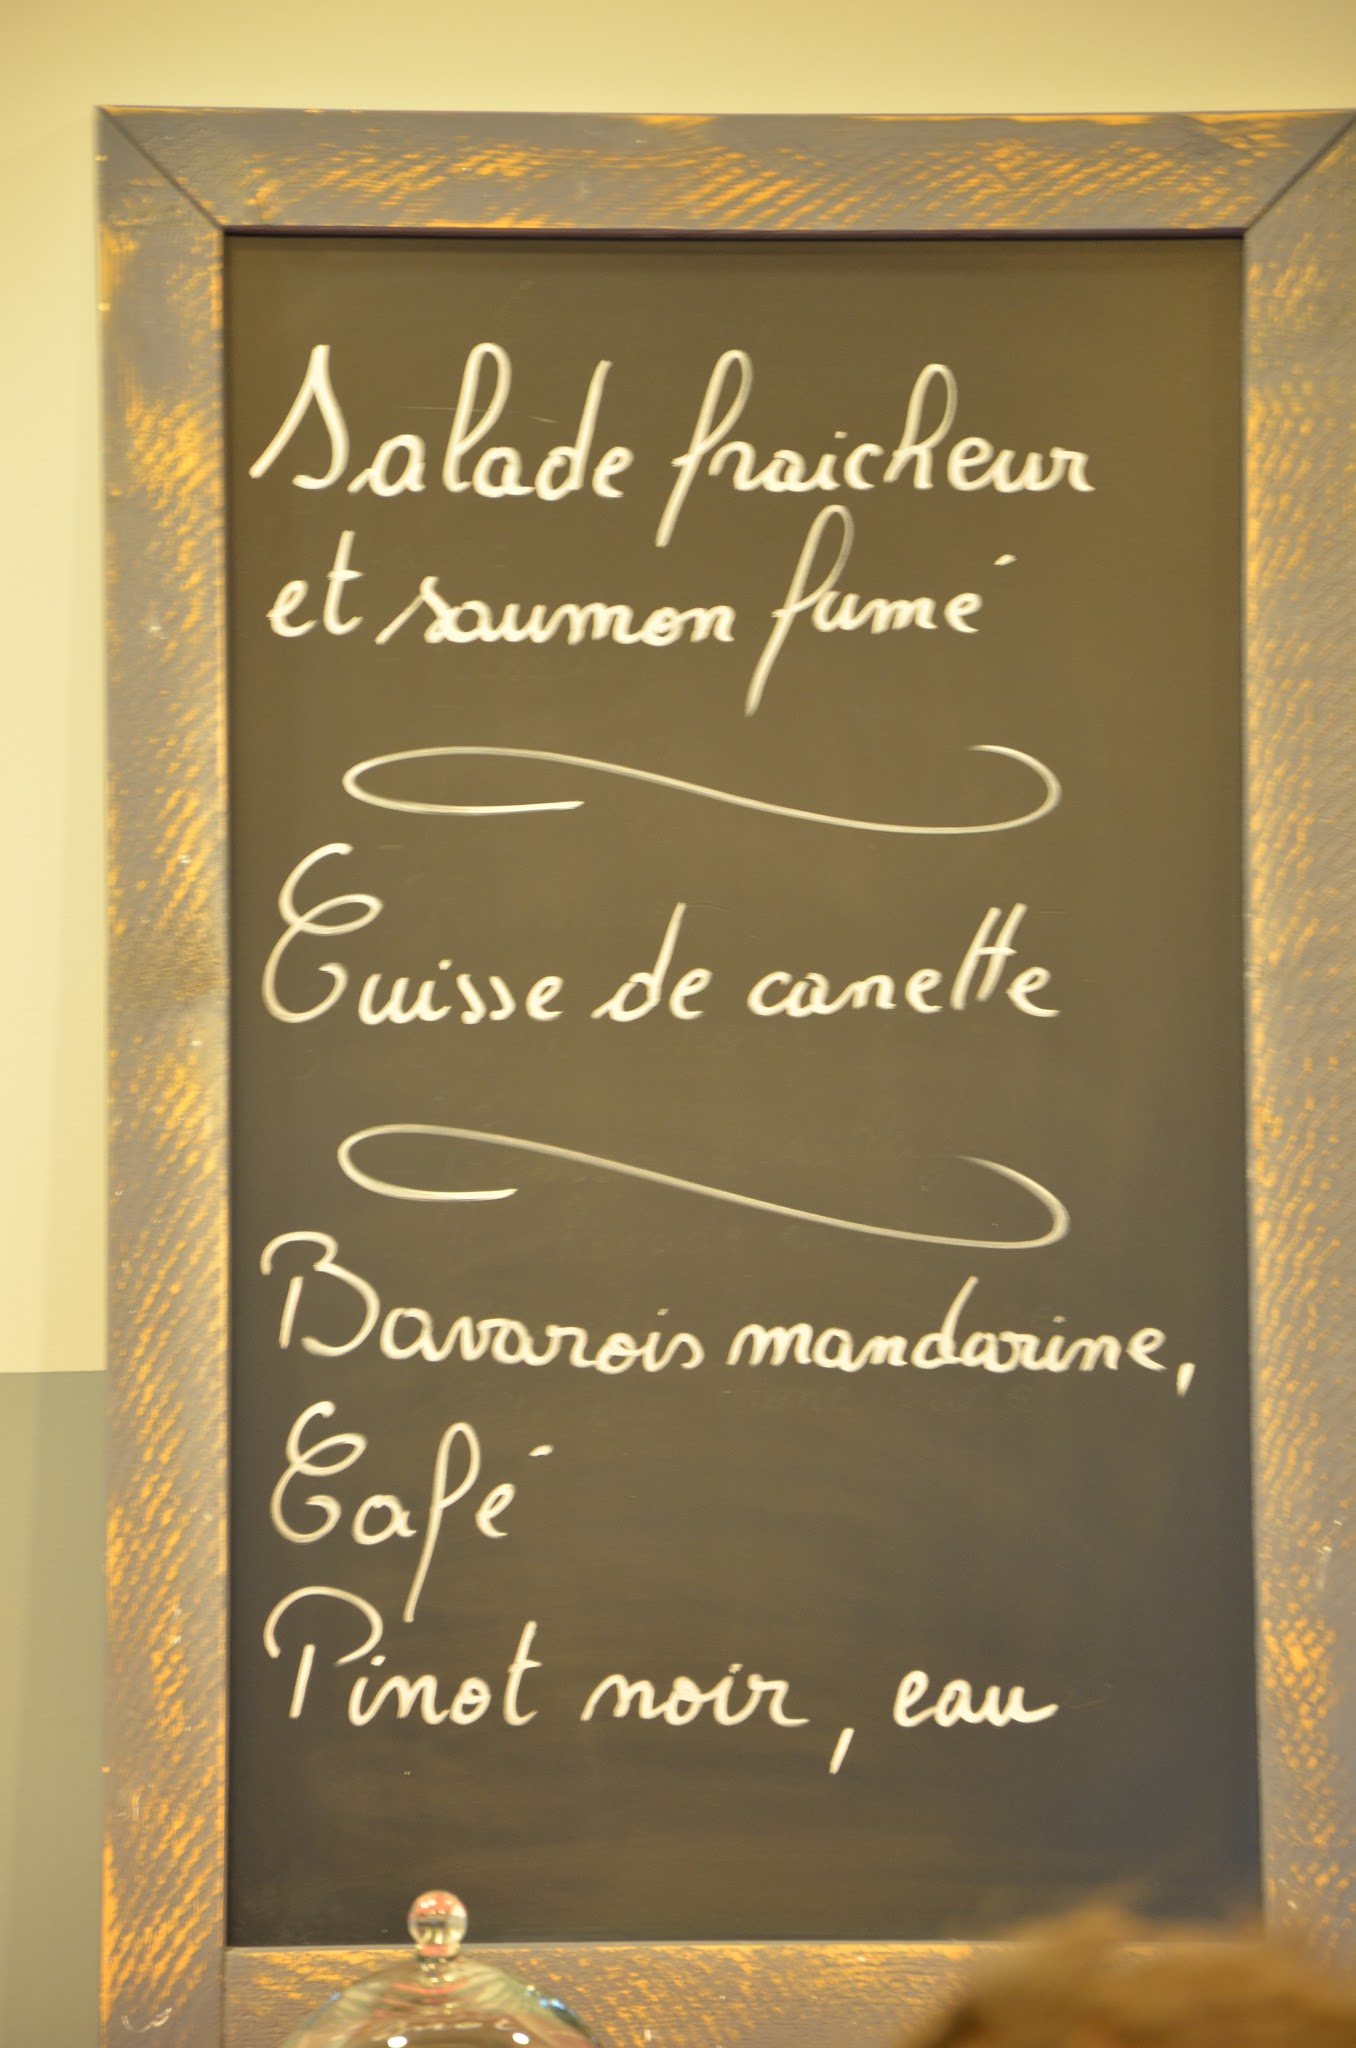 Salade fraicheur
et saumon fumé
Cuisse de canette
Bavarois mandarine,
Café
Pinot noir, eau